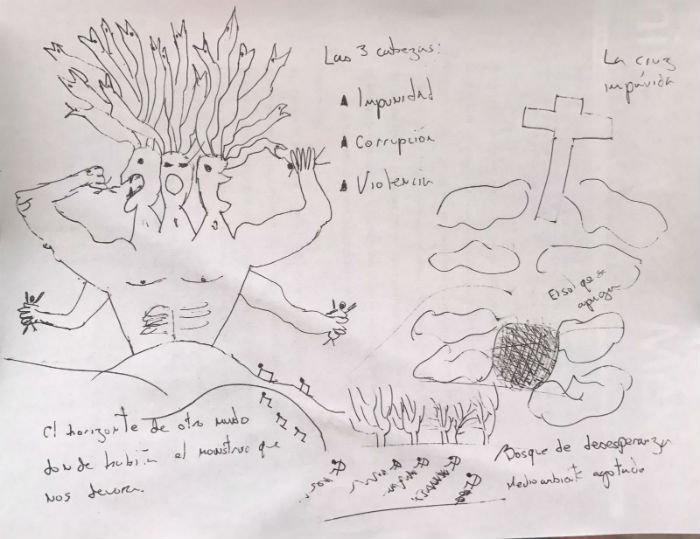 Las 3 cabezas:
Impunidad
Corrupción
Violencia
La cruz
impávida
El sol que se
apaga
El horizonte de otro mundo
donde habita el monstruo que
nos devora.
Bosque de desesperanza
Medio ambiente agotado